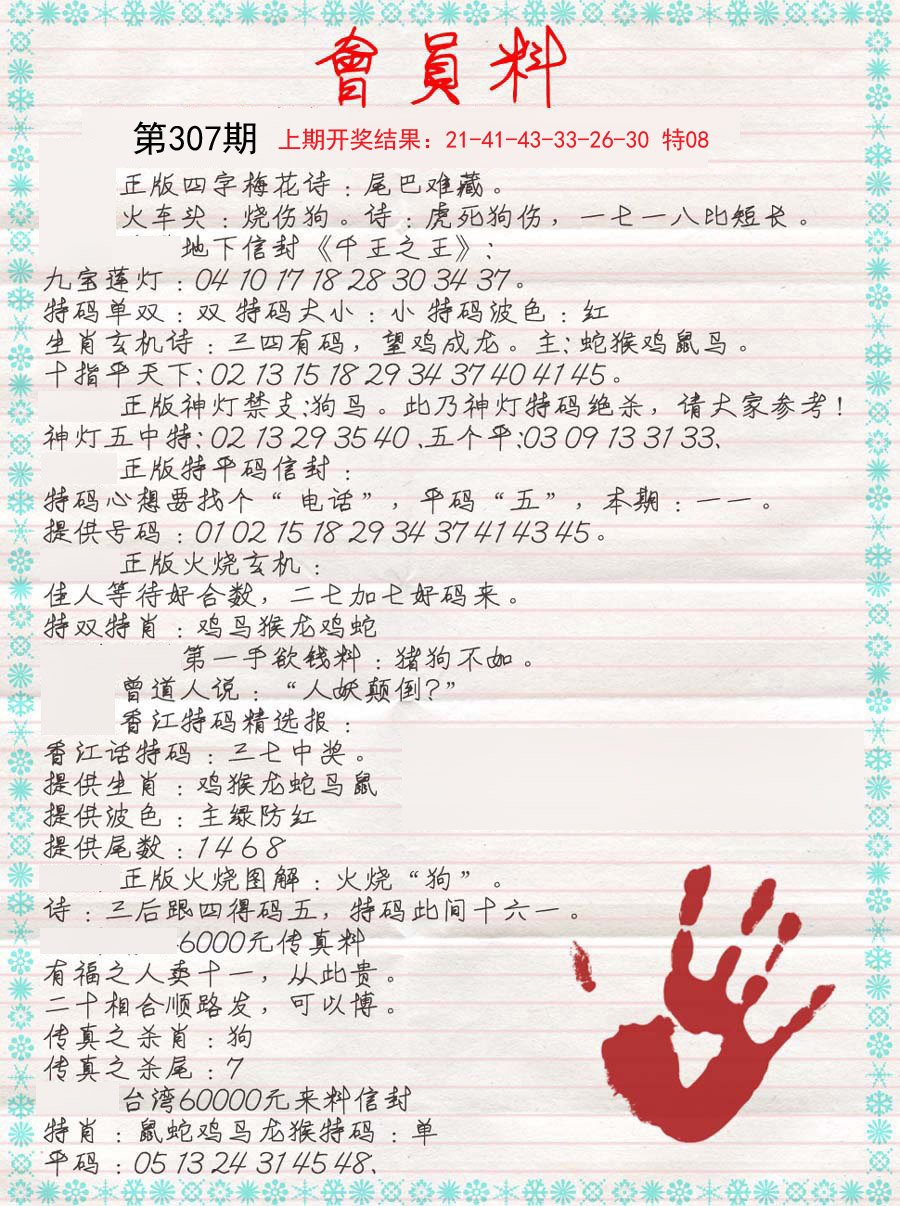 會員料
第307期 上期开奖结果：21-41-43-33-26-30 特08
正版四字梅花诗：尾巴难藏。
火车头：烧伤狗。诗：虎死狗伤，一七一八比短长。
地下信封《千王之王》：
九宝莲灯：04 10 17 18 28 30 34 37。
特码单双：双 特码大小：小 特码波色：红
生肖玄机诗：三四有码，望鸡成龙。主：蛇猴鸡鼠马。
十指平天下：02 13 15 18 29 34 37 40 41 45。
正版神灯禁支：狗马。此乃神灯特码绝杀，请大家参考！
神灯五中特：02 13 29 35 40、五个平：03 09 13 31 33、
正版特平码信封：
特码心想要找个“电话”，平码“五”，本期：一一。
提供号码：01 02 15 18 29 34 37 41 43 45。
正版火烧玄机：
佳人等待好合数，二七加七好码来。
特双特肖：鸡马猴龙鸡蛇
第一手欲钱料：猪狗不如。
曾道人说：“人妖颠倒？”
香江特码精选报：
香江话特码：三七中奖。
提供生肖：鸡猴龙蛇马鼠
提供波色：主绿防红
提供尾数：1 4 6 8
正版火烧图解：火烧“狗”。
诗：三后跟四得码五，特码此间十六一。
6000元传真料
有福之人卖十一，从此贵。
二十相合顺路发，可以博。
传真之杀肖：狗
传真之杀尾：7
台湾60000元来料信封
特肖：鼠蛇鸡马龙猴特码：单
平码：05 13 24 31 45 48、